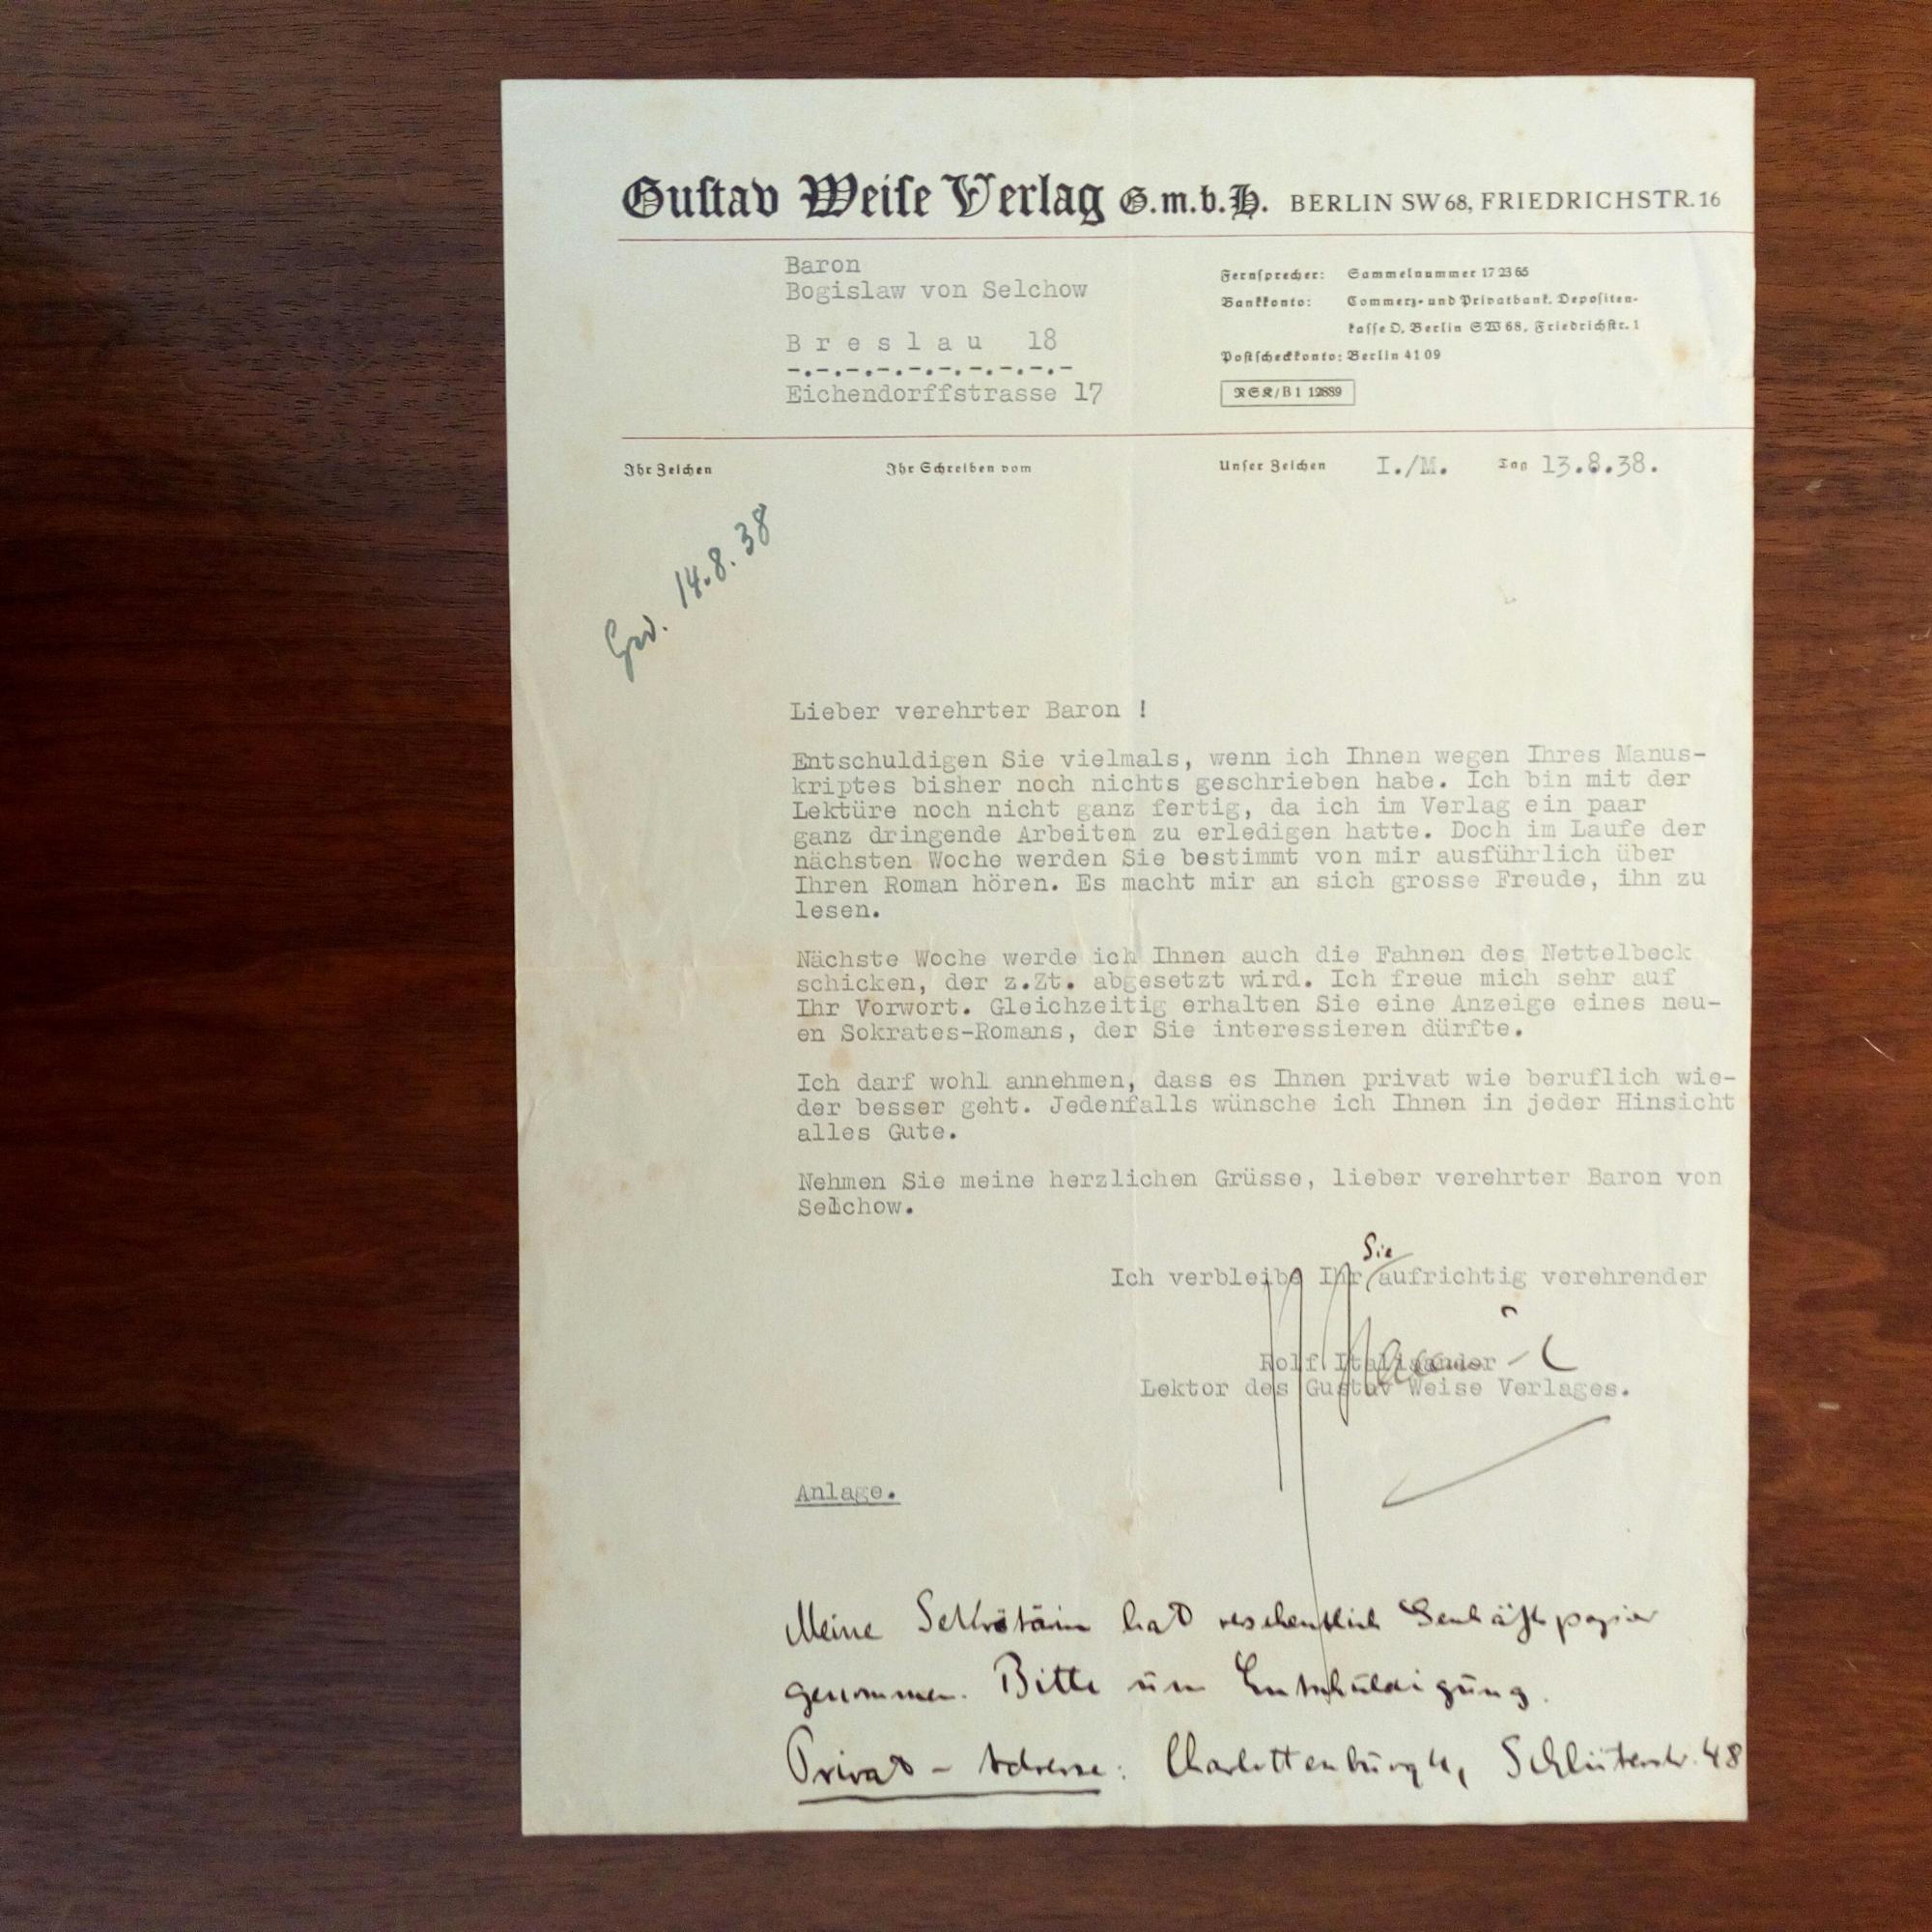 Gustav Weise Verlag G.m.b.H. BERLIN SW 68, FRIEDRICHSTR. 16
Baron
Bogislaw von Selchow
Breslau 18
-.-.-.-.-.-.-.-.-.-
Eichendorffstrasse 17
Fernsprecher: Sammelnummer 17 23 65
Bankkonto: Commerz- und Privatbank, Depositen-
kasse D, Berlin SW 68, Friedrichstr. 1
Postscheckkonto: Berlin 41 09
RSK/B 1 12889
Ihr Zeichen Ihr Schreiben vom Unser Zeichen I./M. Tag 13.8.38.
14.8.38
Lieber verehrter Baron !
Entschuldigen Sie vielmals, wenn ich Ihnen wegen Ihres Manus-
kriptes bisher noch nichts geschrieben habe. Ich bin mit der
Lektüre noch nicht ganz fertig, da ich im Verlag ein paar
ganz dringende Arbeiten zu erledigen hatte. Doch im Laufe der
nächsten Woche werden Sie bestimmt von mir ausführlich über
Ihren Roman hören. Es macht mir an sich grosse Freude, ihn zu
lesen.
Nächste Woche werde ich Ihnen auch die Fahnen des Nettelbeck
schicken, der z.Zt. abgesetzt wird. Ich freue mich sehr auf
Ihr Vorwort. Gleichzeitig erhalten Sie eine Anzeige eines neu-
en Sokrates-Romans, der Sie interessieren dürfte.
Ich darf wohl annehmen, dass es Ihnen privat wie beruflich wie-
der besser geht. Jedenfalls wünsche ich Ihnen in jeder Hinsicht
alles Gute.
Nehmen Sie meine herzlichen Grüsse, lieber verehrter Baron von
Selchow.
Sie
Ich verbleibe Ihr aufrichtig verehrender
Rolf Italiaander
Lektor des Gustav Weise Verlages.
Anlage.
Meine Sekretärin hat versehentlich Geschäftspapier
genommen. Bitte um Entschuldigung.
Privat-Adresse: Charlottenburg 4, Schlüterstr. 48